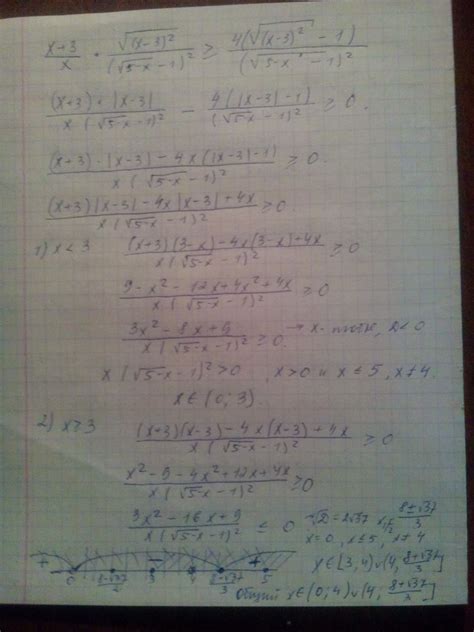 (x+3)/x · √((x-3)²)/(√(5-x) - 1)² ≥ 4(√((x-3)²) - 1)/(√(5-x) - 1)²
(x+3)·|x-3|/(x(√(5-x) - 1)²) - 4(|x-3| - 1)/(√(5-x) - 1)² ≥ 0.
((x+3)·|x-3| - 4x(|x-3| - 1))/(x(√(5-x) - 1)²) ≥ 0.
((x+3)|x-3| - 4x|x-3| + 4x)/(x(√(5-x) - 1)²) ≥ 0.
1) x < 3 ((x+3)(3-x) - 4x(3-x) + 4x)/(x(√(5-x) - 1)²) ≥ 0
(9 - x² - 12x + 4x² + 4x)/(x(√(5-x) - 1)²) ≥ 0
(3x² - 8x + 9)/(x(√(5-x) - 1)²) ≥ 0. → D < 0
x(√(5-x) - 1)² > 0, x > 0 и x ≤ 5, x ≠ 4.
x ∈ (0; 3).
2) x ≥ 3 ((x+3)(x-3) - 4x(x-3) + 4x)/(x(√(5-x) - 1)²) ≥ 0
(x² - 9 - 4x² + 12x + 4x)/(x(√(5-x) - 1)²) ≥ 0
(3x² - 16x + 9)/(x(√(5-x) - 1)²) ≤ 0 √D = 2√37 x₁,₂ = (8±√37)/3
x = 0, x ≤ 5, x ≠ 4
+ 0 (8-√37)/3 - 3 4 (8+√37)/3 + 5 x ∈ [3; 4) ∪ (4; (8+√37)/3]
Общий x ∈ (0; 4) ∪ (4; (8+√37)/3]